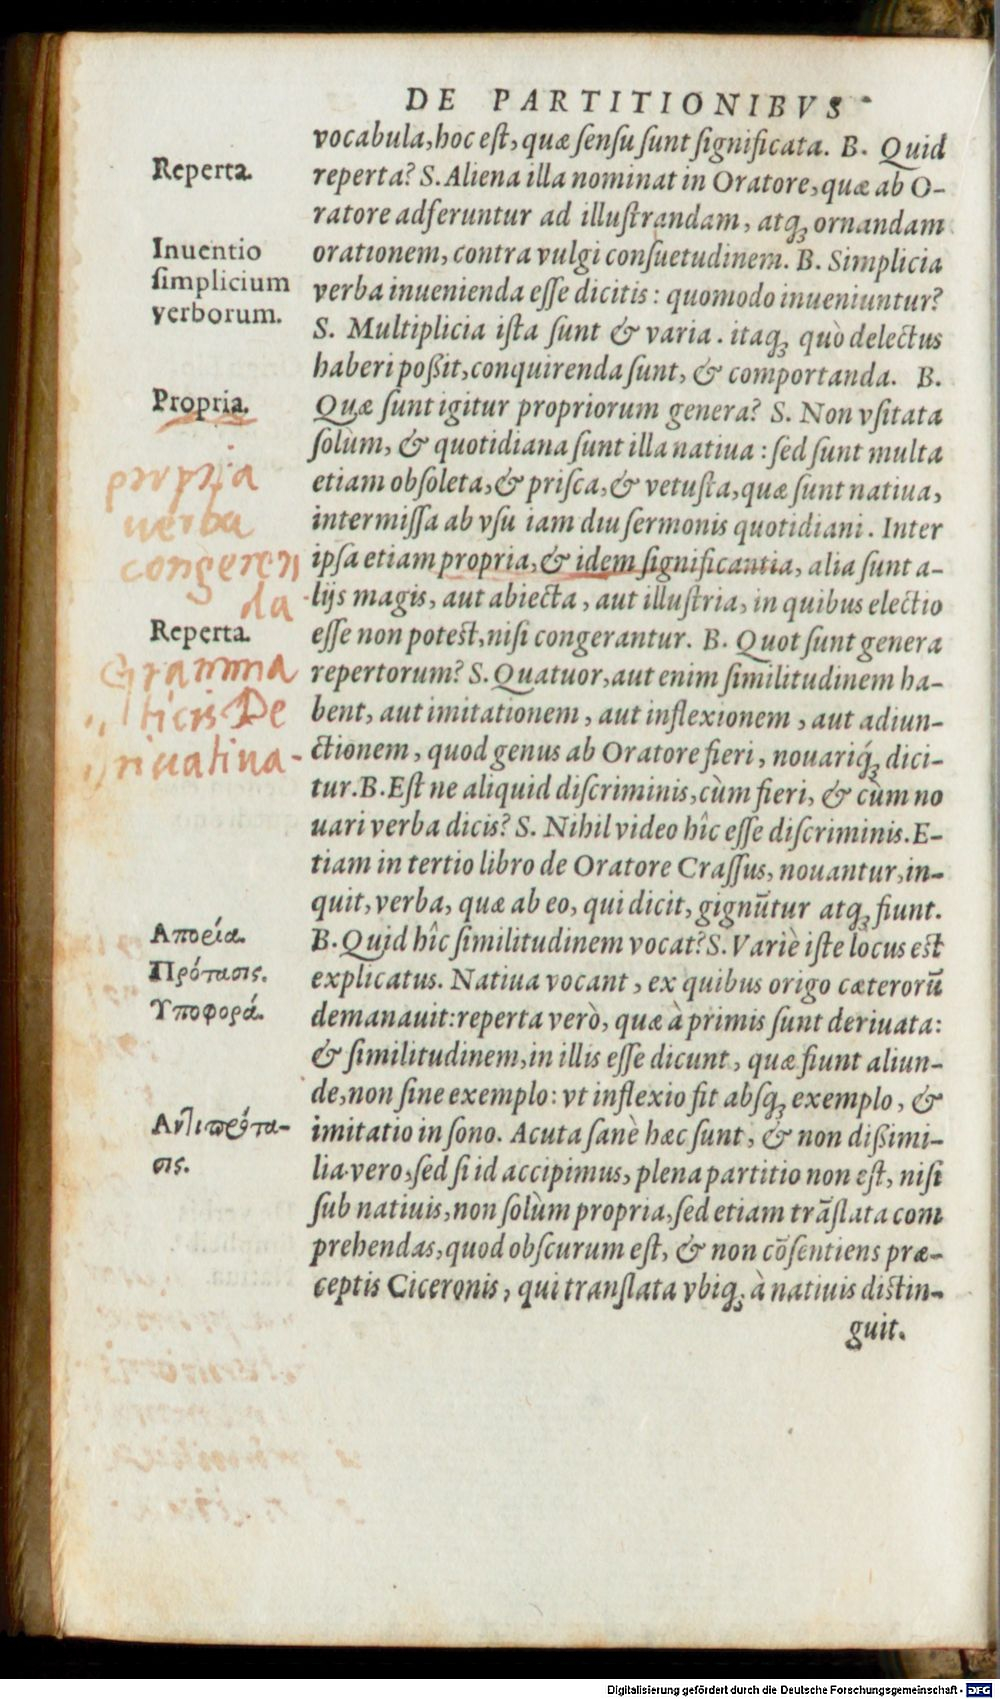 DE PARTITIONIBVS
vocabula, hoc eſt, quæ ſenſu ſunt ſignificata. B. Quid
Reperta.
reperta? S. Aliena illa nominat in Oratore, quæ ab O-
ratore adferuntur ad illuſtrandam, atq́ꝫ ornandam
Inuentio
ſimplicium
verborum.
orationem, contra vulgi conſuetudinem. B. Simplicia
verba inuenienda eſſe dicitis: quomodo inueniuntur?
S. Multiplicia iſta ſunt & varia. itaqꝫ quò delectus
haberi poßit, conquirenda ſunt, & comportanda. B.
Propria.
Quæ ſunt igitur propriorum genera? S. Non vſitata
ſolùm, & quotidiana ſunt illa natiua: ſed ſunt multa
etiam obſoleta, & priſca, & vetuſta, quæ ſunt natiua,
intermiſſa ab vſu iam diu ſermonis quotidiani. Inter
propria
uerba
congeren
da
ipſa etiam propria, & idem ſignificantia, alia ſunt a-
lijs magis, aut abiecta, aut illuſtria, in quibus electio
Reperta.
eſſe non poteſt, niſi congerantur. B. Quot ſunt genera
Gramma
ticis De
riuatiua-
repertorum? S. Quatuor, aut enim ſimilitudinem ha-
bent, aut imitationem, aut inflexionem, aut adiun-
ctionem, quod genus ab Oratore fieri, nouariq́ꝫ dici-
tur. B. Eſt ne aliquid diſcriminis, cùm fieri, & cùm no
uari verba dicis? S. Nihil video hîc eſſe diſcriminis. E-
tiam in tertio libro de Oratore Craſſus, nouantur, in-
quit, verba, quæ ab eo, qui dicit, gignūtur atqꝫ fiunt.
Αποεία.
B. Quid hîc ſimilitudinem vocat? S. Variè iſte locus eſt
Πρότασις.
explicatus. Natiua vocant, ex quibus origo cæterorū
Υποφορά.
demanauit: reperta verò, quæ à primis ſunt deriuata:
& ſimilitudinem, in illis eſſe dicunt, quæ fiunt aliun-
de, non ſine exemplo: vt inflexio fit abſqꝫ exemplo, &
Αντιπρότα-
σις.
imitatio in ſono. Acuta ſanè hæc ſunt, & non dißimi-
lia vero, ſed ſi id accipimus, plena partitio non eſt, niſi
ſub natiuis, non ſolùm propria, ſed etiam trāſlata com
prehendas, quod obſcurum eſt, & non cōſentiens præ-
ceptis Ciceronis, qui tranſlata vbiqꝫ à natiuis diſtin-
guit.
Digitalisierung gefördert durch die Deutsche Forschungsgemeinschaft - DFG